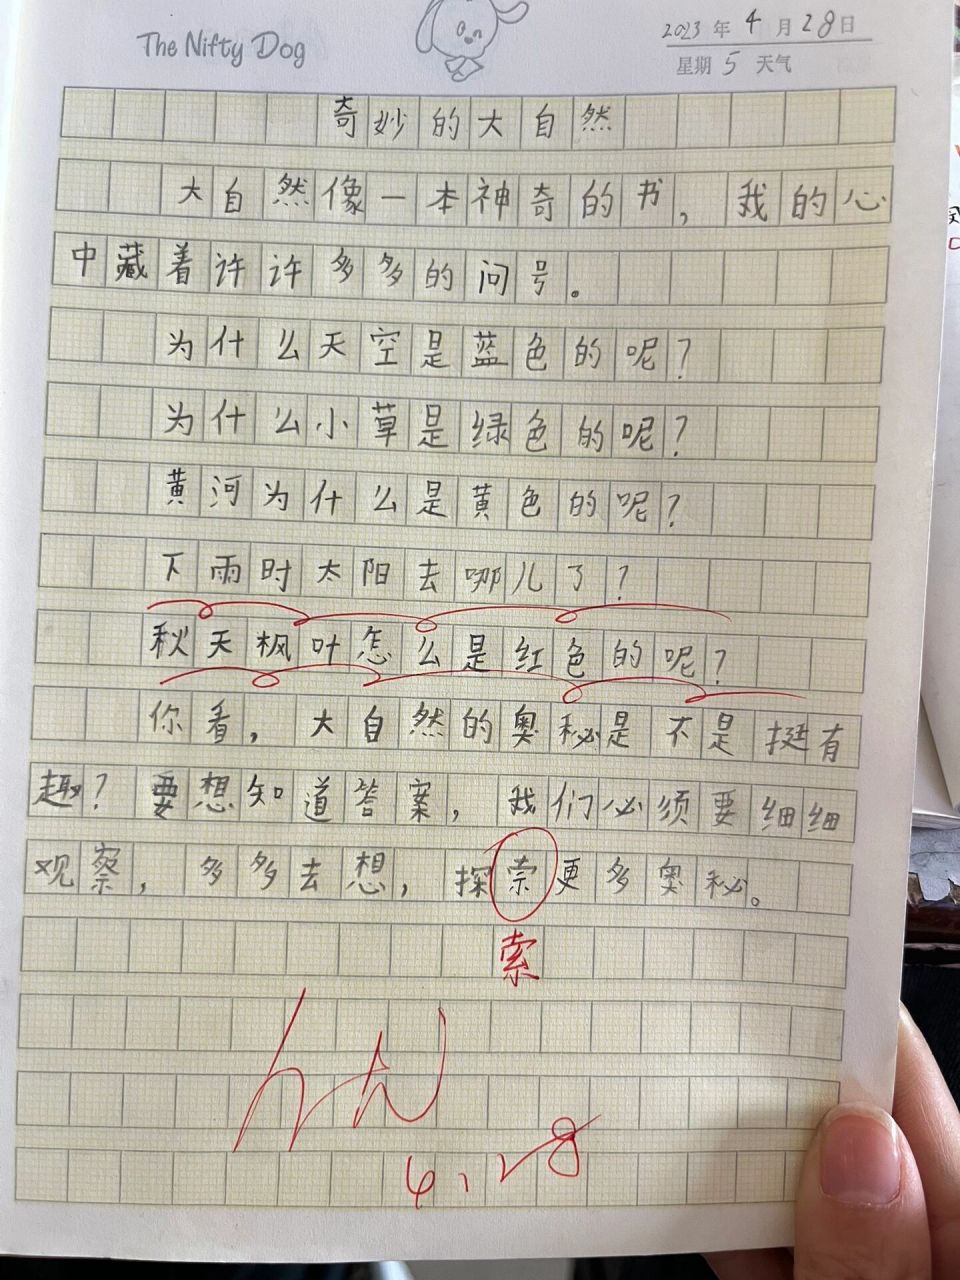 The Nifty Dog
2023 年 4 月 28 日
星期 5 天气
奇妙的大自然
大自然像一本神奇的书，我的心
中藏着许许多多的问号。
为什么天空是蓝色的呢？
为什么小草是绿色的呢？
黄河为什么是黄色的呢？
下雨时太阳去哪儿了？
秋天枫叶怎么是红色的呢？
你看，大自然的奥秘是不是挺有
趣？要想知道答案，我们必须要细细
观察，多多去想，探索更多奥秘。
索
优
4.28